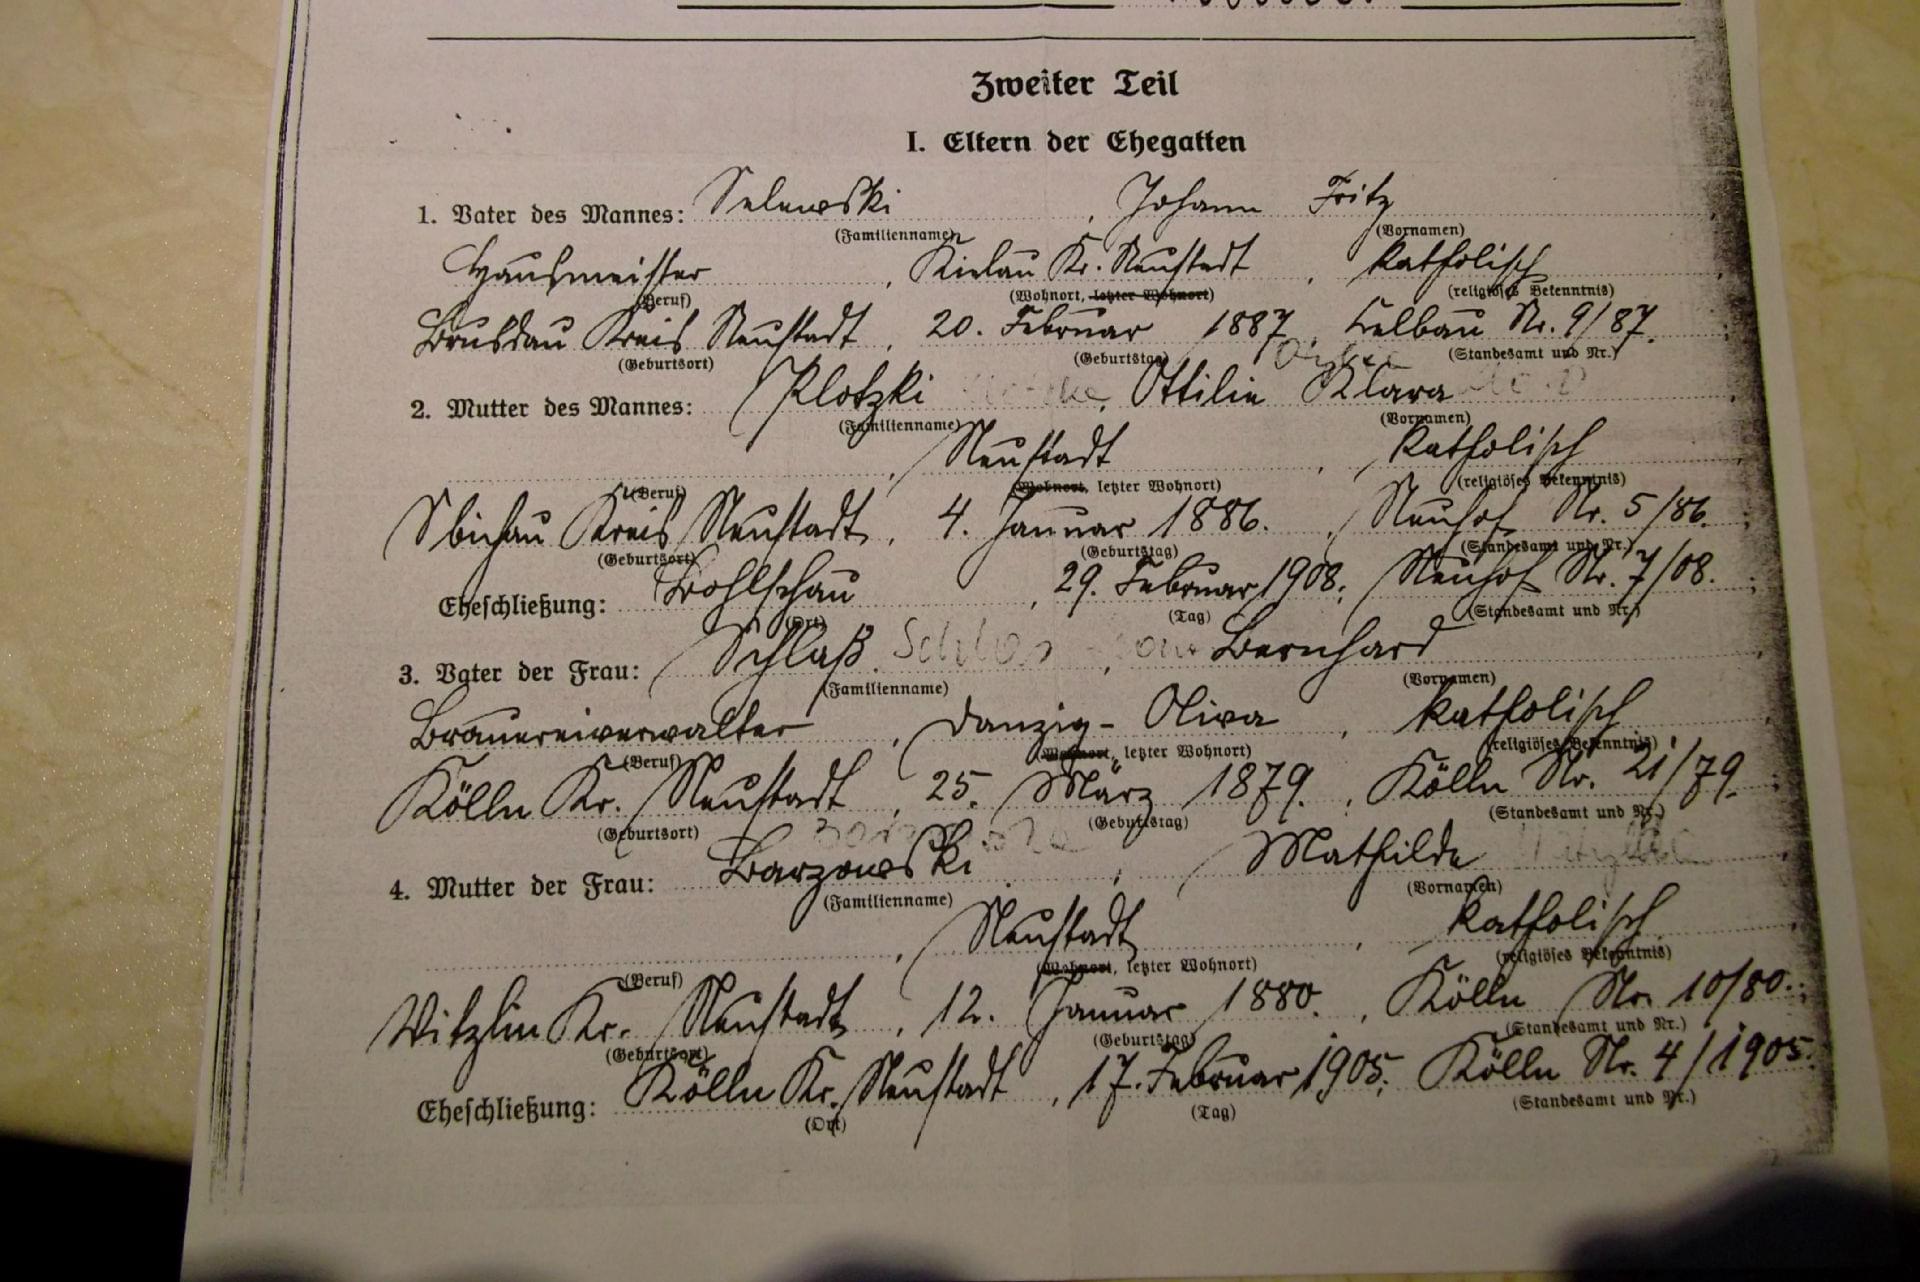 Zweiter Teil
I. Eltern der Ehegatten
1. Vater des Mannes: Selewski, Johann Fritz
(Familienname) (Vornamen)
Hausmeister, Kielau Kr. Neustadt, katholisch
(Beruf) (Wohnort, letzter Wohnort) (religiöses Bekenntnis)
Brusdau Kreis Neustadt, 20. Februar 1887, Nr. 9/87.
(Geburtsort) (Geburtstag) (Standesamt und Nr.)
2. Mutter des Mannes: Plotzki, Ottilie Klara
(Familienname) (Vornamen)
Neustadt, katholisch
(Beruf) (Wohnort, letzter Wohnort) (religiöses Bekenntnis)
Sbichau Kreis Neustadt, 4. Januar 1886., Neuhof Nr. 5/86.
(Geburtsort) (Geburtstag) (Standesamt und Nr.)
Eheschließung: Wohlschau, 29. Februar 1908; Neuhof Nr. 7/08.
(Ort) (Tag) (Standesamt und Nr.)
3. Vater der Frau: Schlaß, Bernhard
(Familienname) (Vornamen)
Brauereiverwalter, Danzig-Oliva, katholisch
(Beruf) (Wohnort, letzter Wohnort) (religiöses Bekenntnis)
Kölln Kr. Neustadt, 25. März 1879., Kölln Nr. 21/79.
(Geburtsort) (Geburtstag) (Standesamt und Nr.)
4. Mutter der Frau: Barzowski, Mathilde
(Familienname) (Vornamen)
Neustadt, katholisch
(Beruf) (Wohnort, letzter Wohnort) (religiöses Bekenntnis)
Witzlin Kr. Neustadt, 12. Januar 1880., Kölln Nr. 10/80.
(Geburtsort) (Geburtstag) (Standesamt und Nr.)
Eheschließung: Kölln Kr. Neustadt, 17. Februar 1905; Kölln Nr. 4/1905.
(Ort) (Tag) (Standesamt und Nr.)